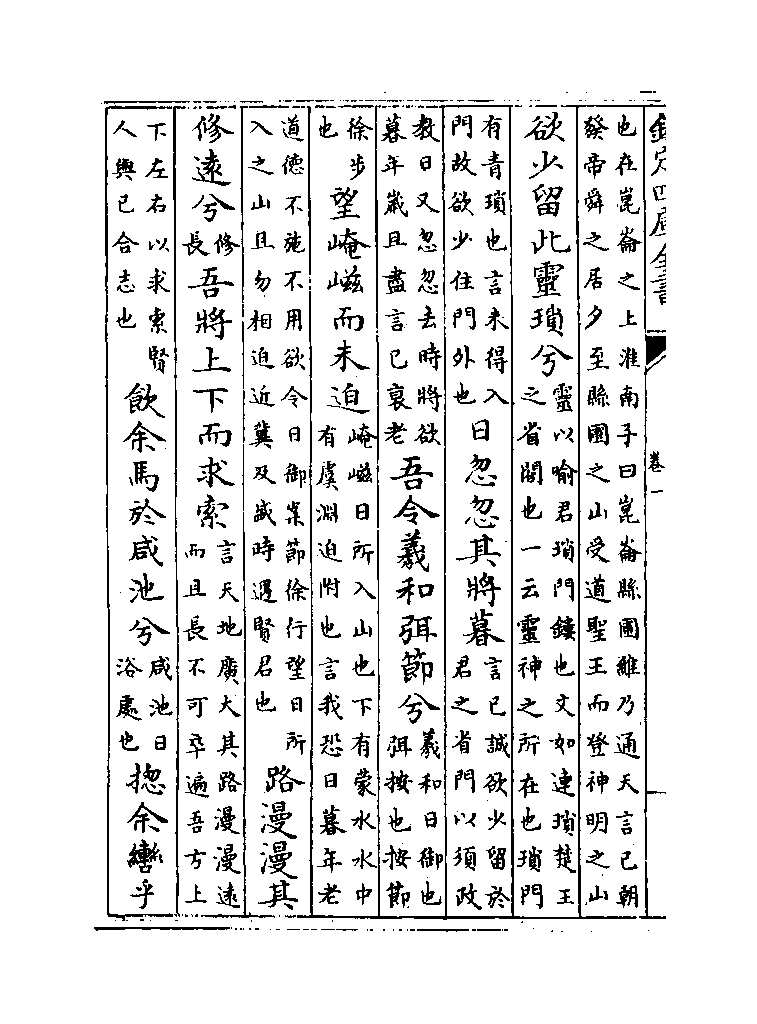 欽定四庫全書 卷一
也在崑崙之上淮南子曰崑崙縣圃維乃通天言己朝
發帝舜之居夕至縣圃之山受道聖王而登神明之山
欲少留此靈瑣兮靈以喻君瑣門鏤也文如連瑣楚王之省閣也一云靈神之所在也瑣門
有青瑣也言未得入門故欲少住門外也日忽忽其將暮言己誠欲少留於君之省門以須政
教日又忽忽去時將欲暮年歲且盡言己衰老吾令羲和弭節兮羲和日御也弭按也按節
徐步也望崦嵫而未迫崦嵫日所入山也下有蒙水水中有虞淵迫附也言我恐日暮年老
道德不施不用欲令日御案節徐行望日所入之山且勿相迫近冀及盛時遇賢君也路漫漫其
修遠兮修長吾將上下而求索言天地廣大其路漫漫遠而且長不可卒遍吾方上
下左右以求索賢人與己合志也飲余馬於咸池兮咸池日浴處也揔余轡乎